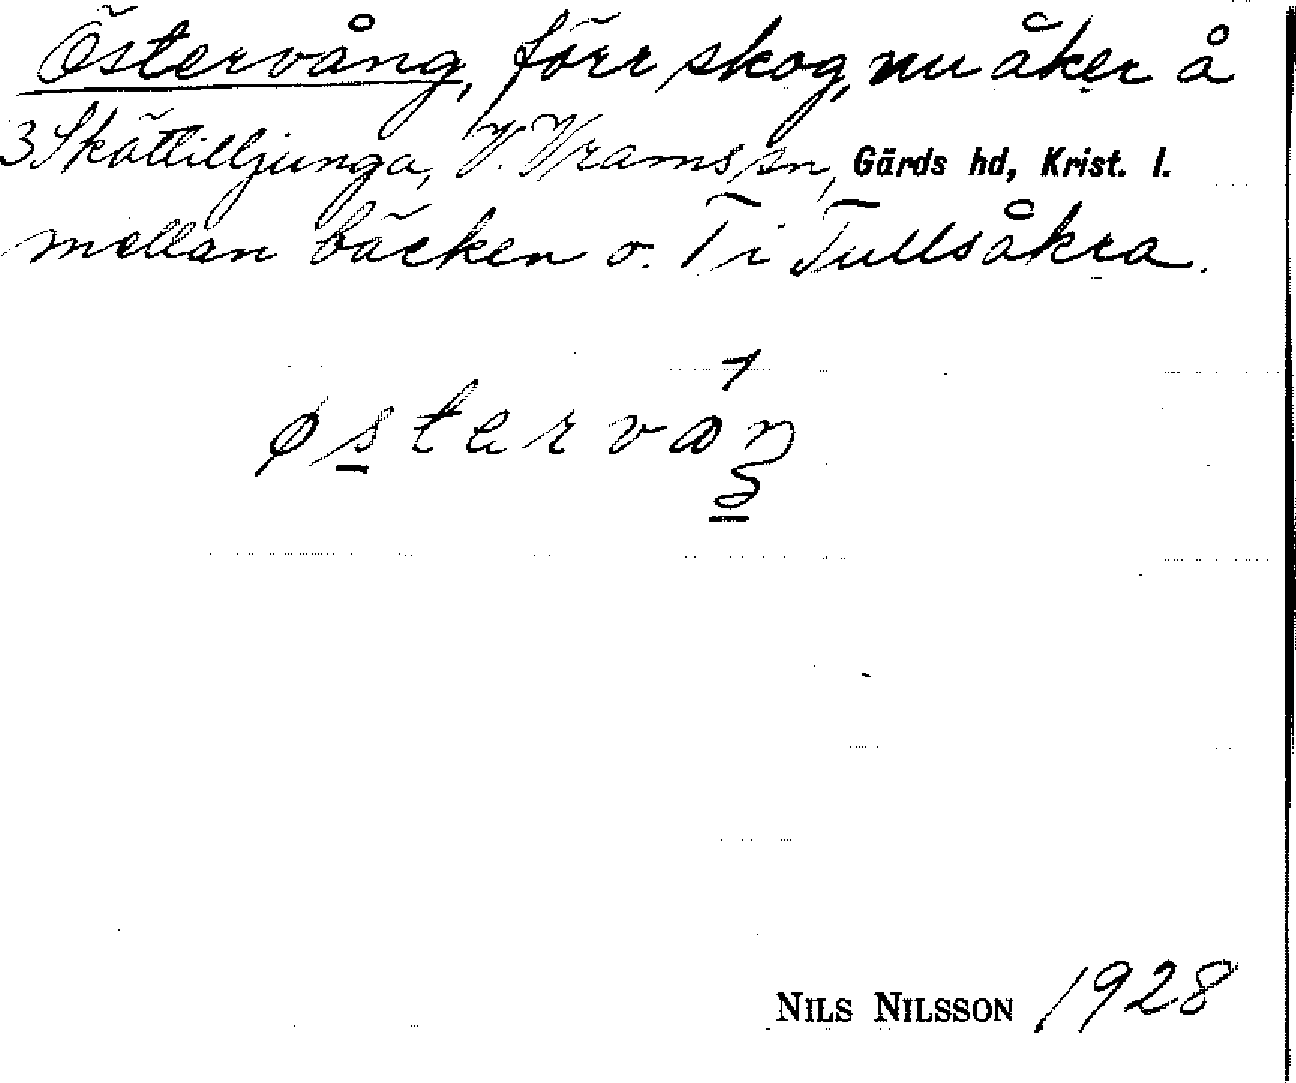 Östervång, förr skog, nu åker å
3 Skättilljunga, V. Vrams sn, Gärds hd, Krist. l.
mellan bäcken o. Ti Tullsåkra.
østervaŋ
NILS NILSSON 1928